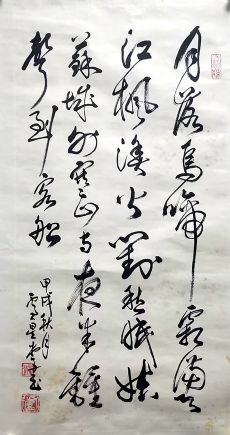 月落烏啼霜滿天
江楓漁火對愁眠姑
蘇城外寒山寺夜半鐘
聲到客船
甲戌秋月
書